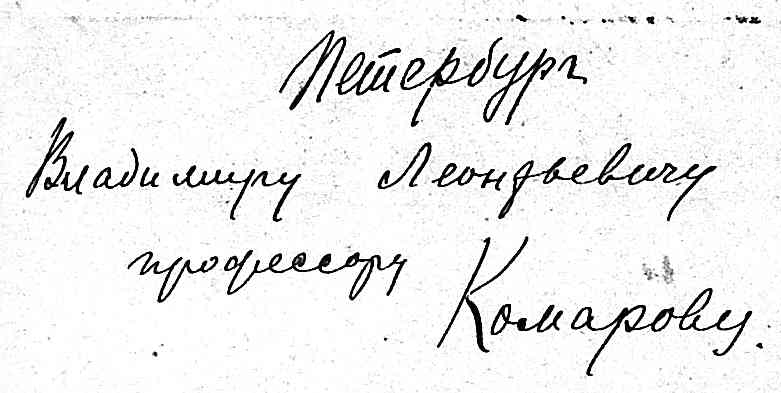 Петербург
Владимиру Леонтьевичу
профессору
Комарову.